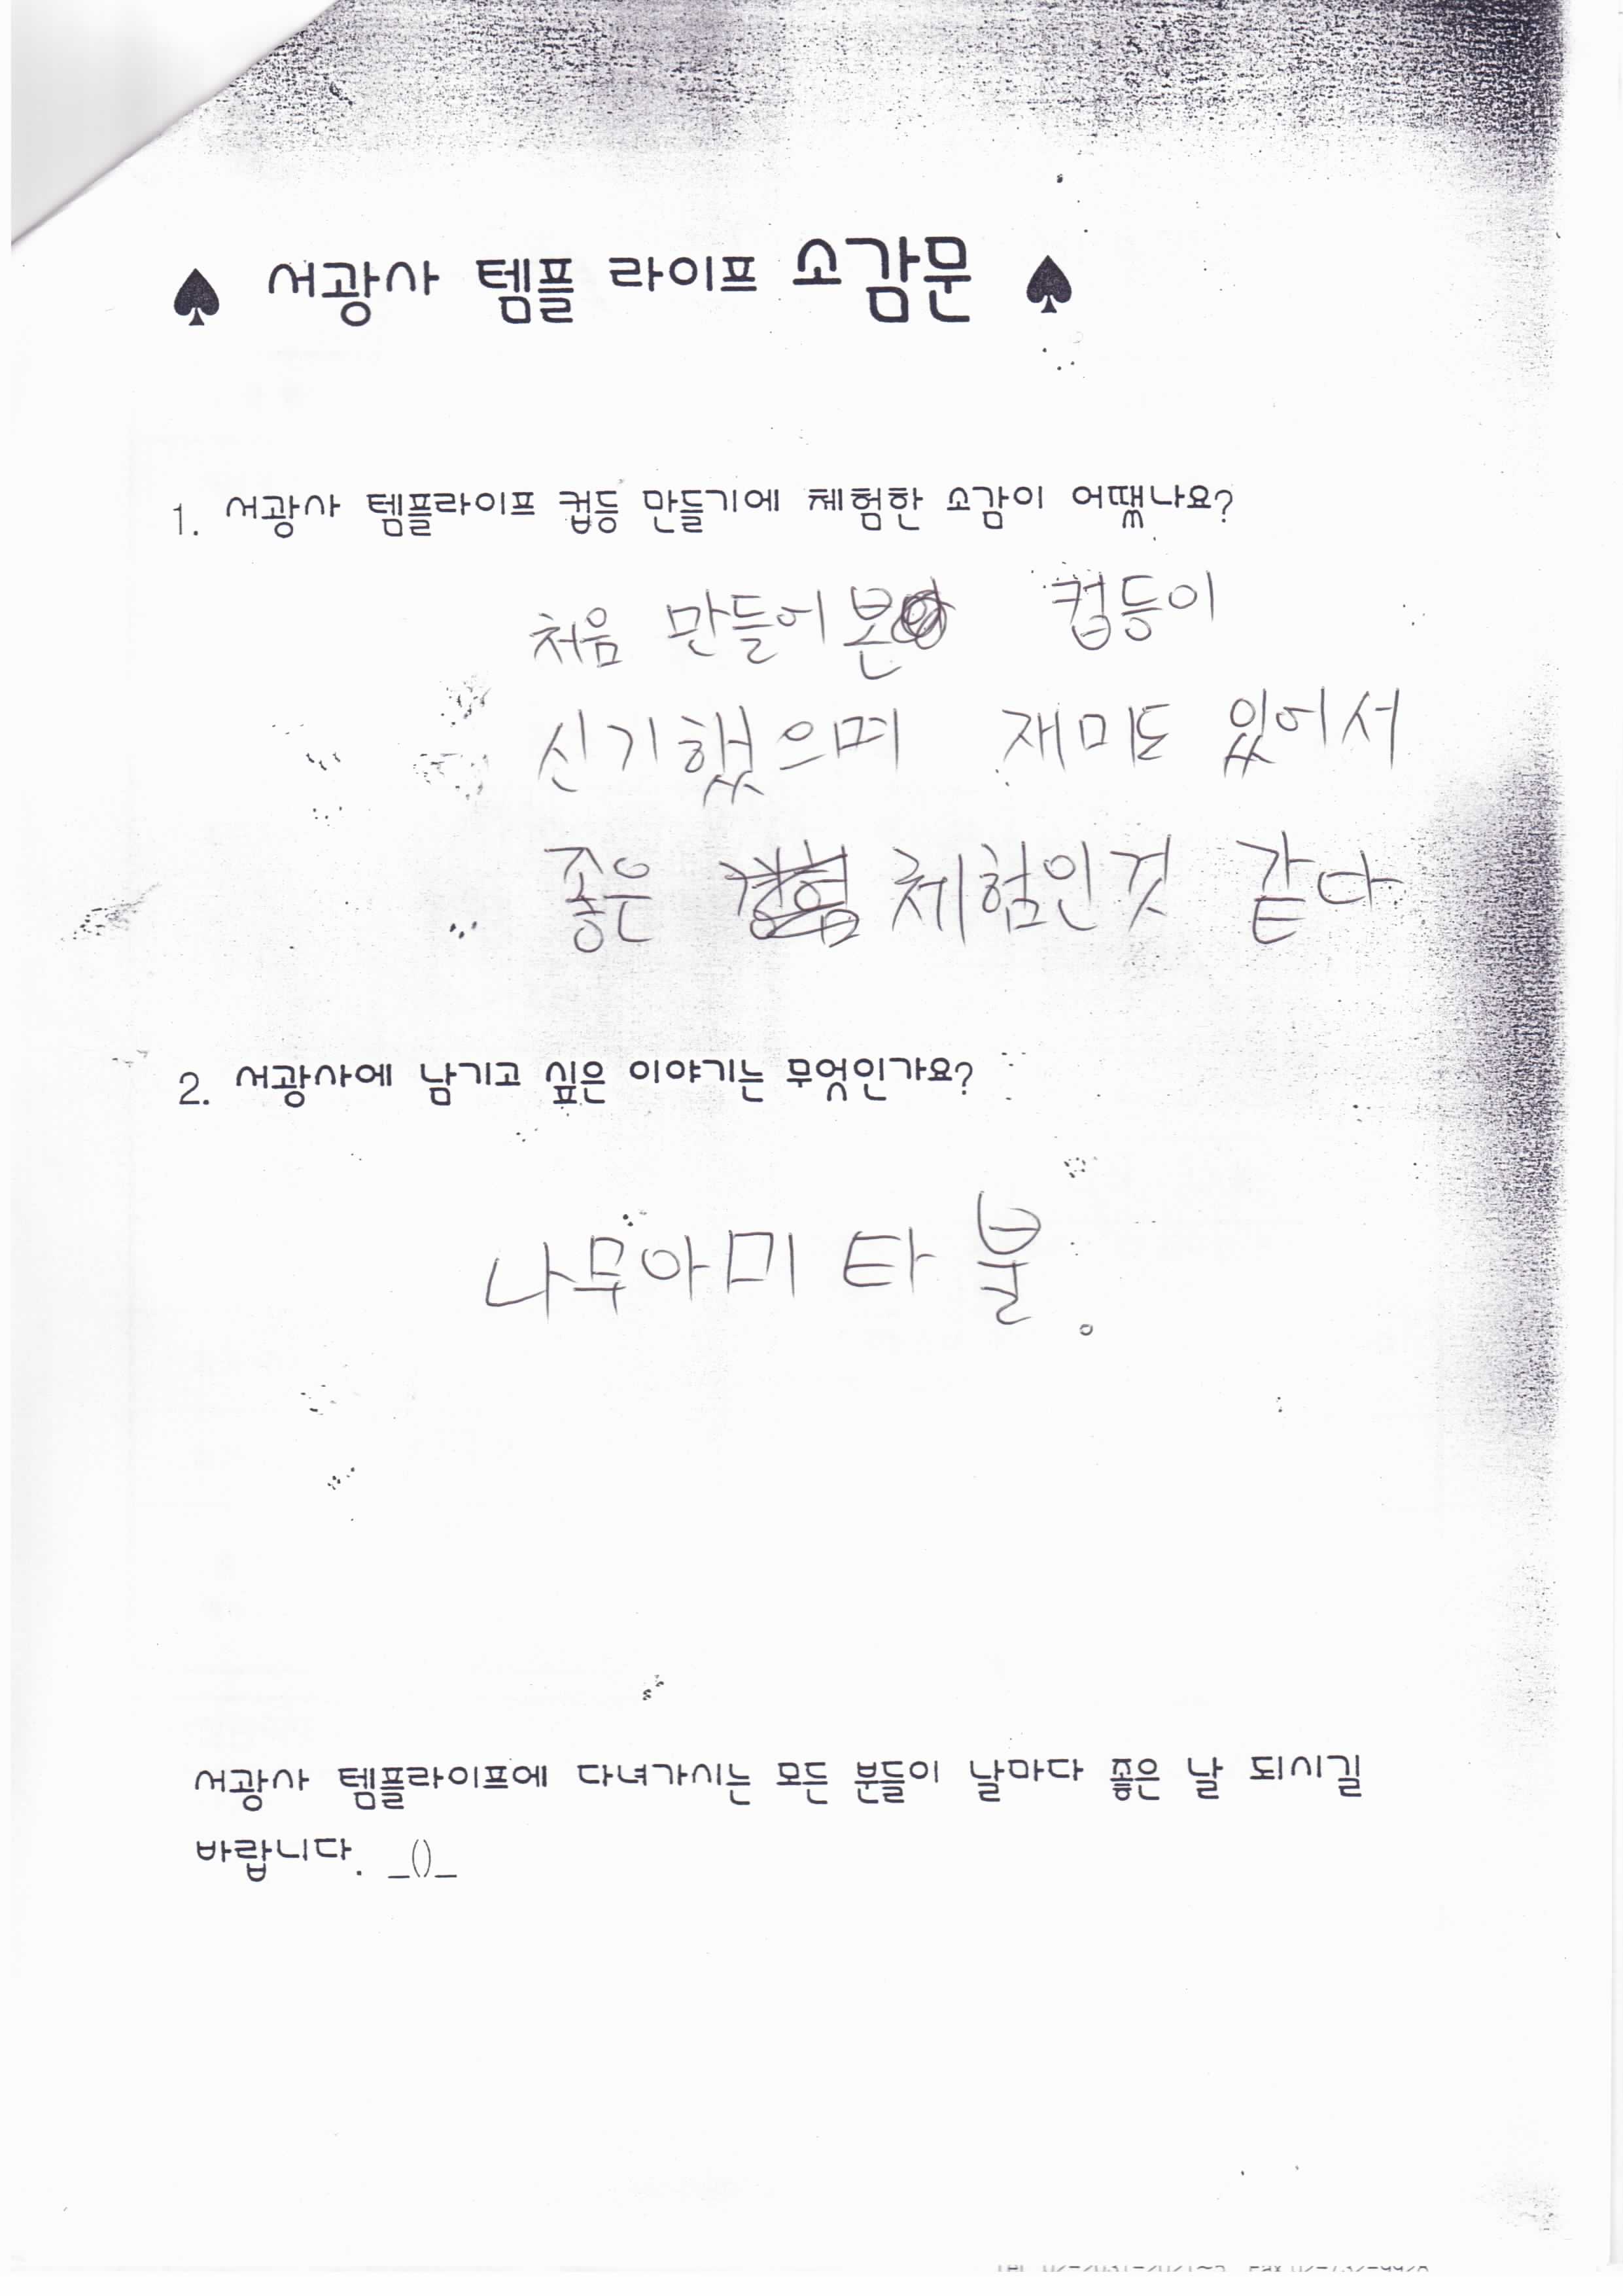 ♠ 서광사 템플 라이프 소감문 ♠
1. 서광사 템플라이프 컵등 만들기에 체험한 소감이 어땠나요?
처음 만들어본 컵등이
신기했으며 재미도 있어서
좋은 체험인것 같다
2. 서광사에 남기고 싶은 이야기는 무엇인가요?
나무아미타불.
서광사 템플라이프에 다녀가시는 모든 분들이 날마다 좋은 날 되시길
바랍니다. _()_